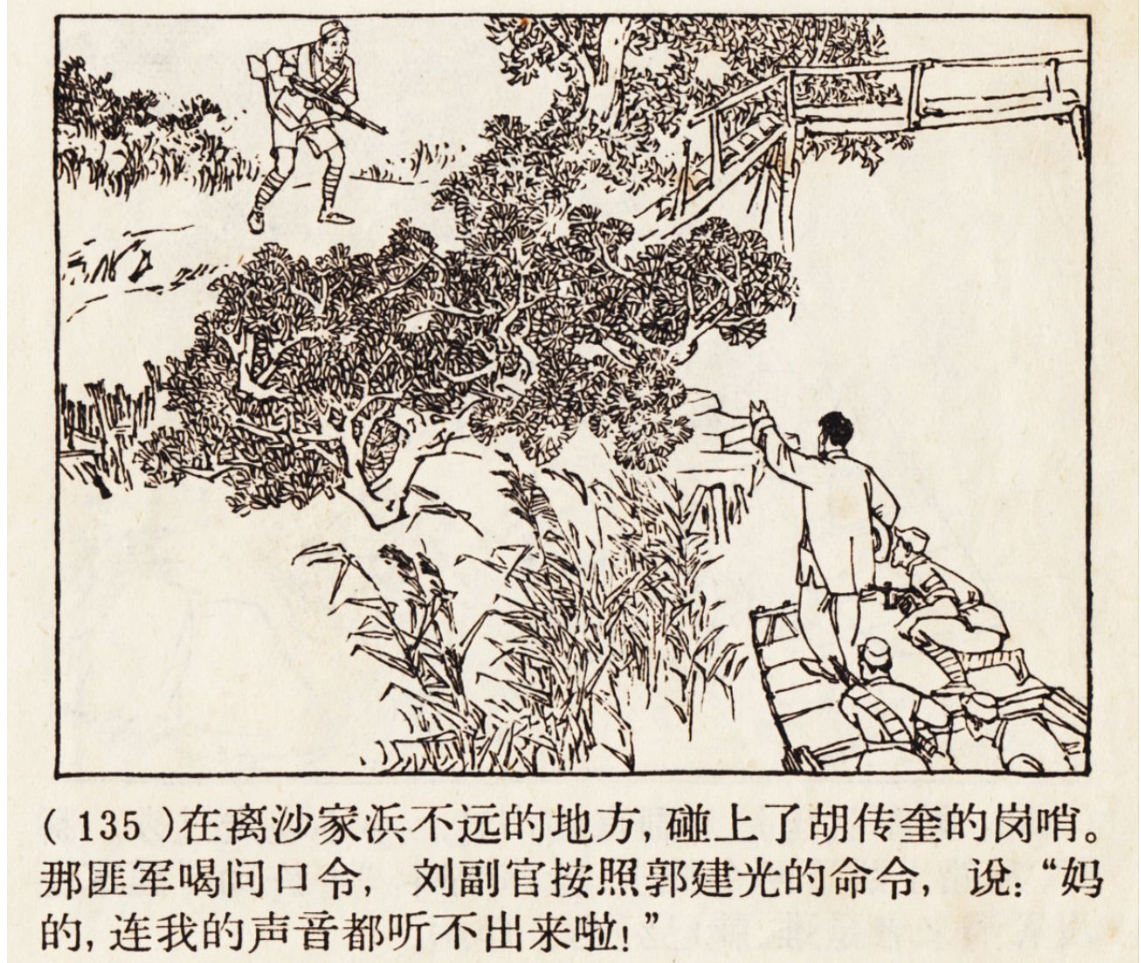 (135)在离沙家浜不远的地方,碰上了胡传奎的岗哨。
那匪军喝问口令, 刘副官按照郭建光的命令, 说:“妈
的,连我的声音都听不出来啦!”